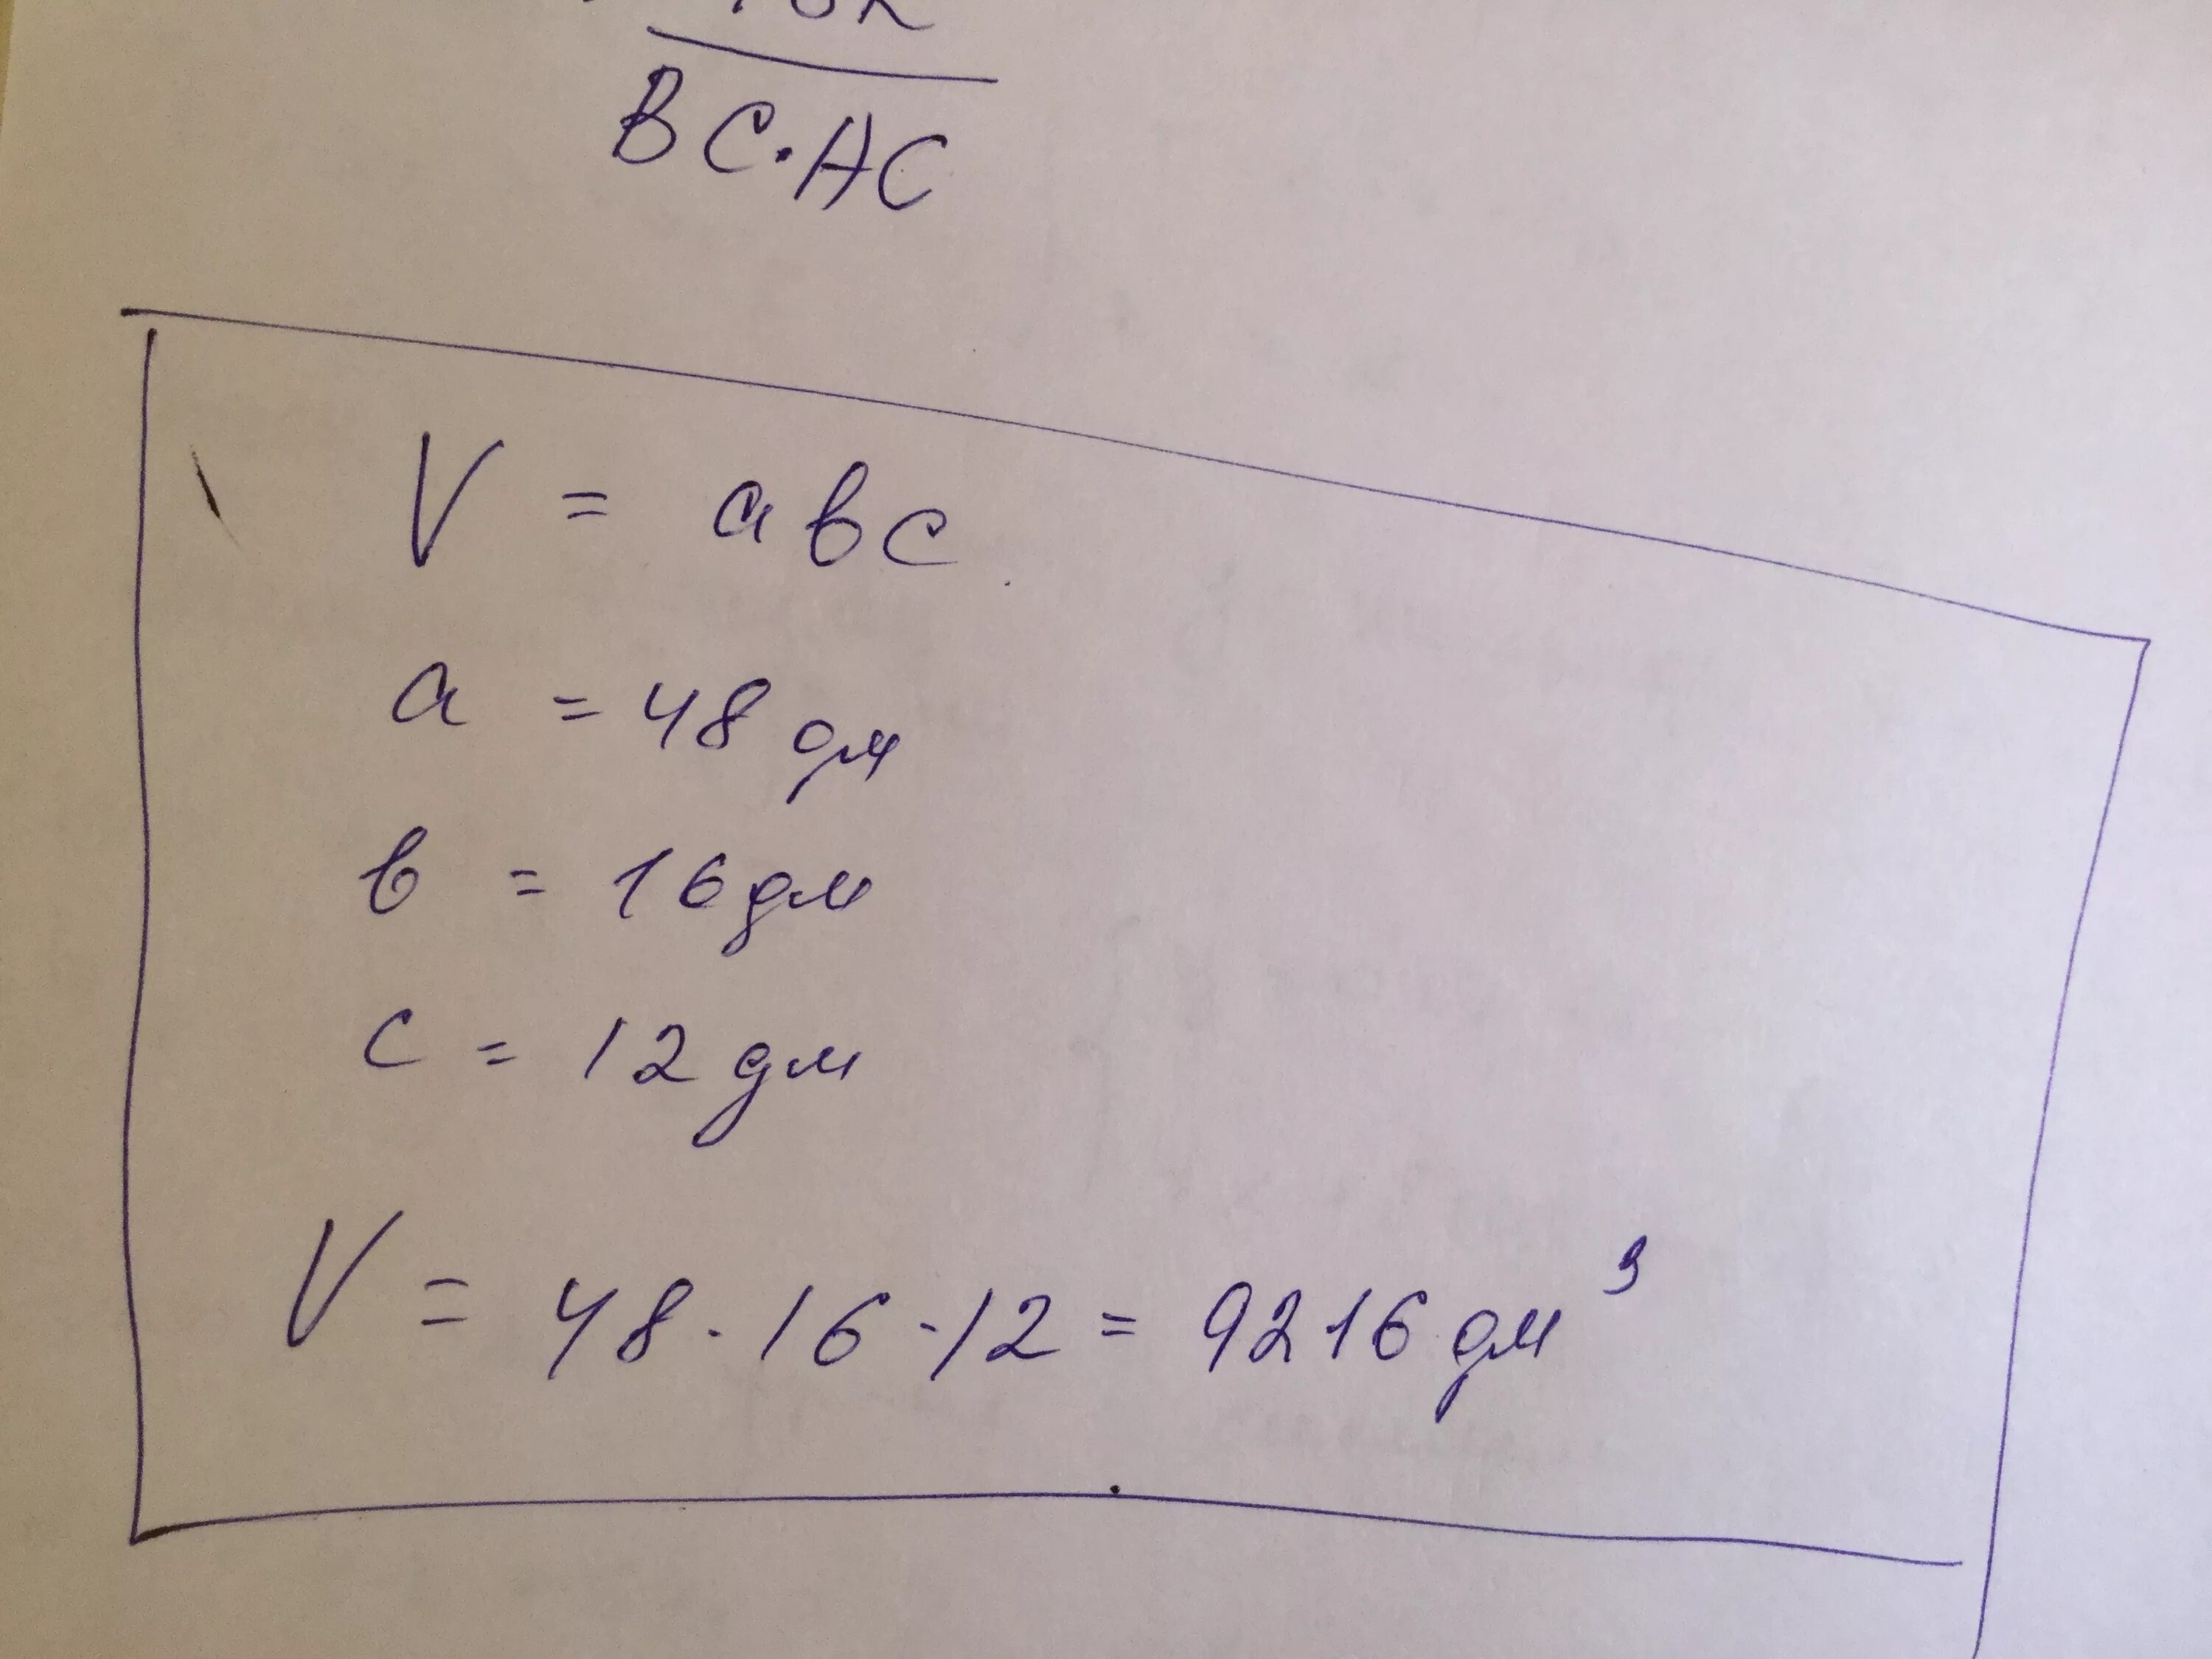 BC·AC
V = abc
a = 48 дм
b = 16 дм
c = 12 дм
V = 48 · 16 · 12 = 9216 дм³